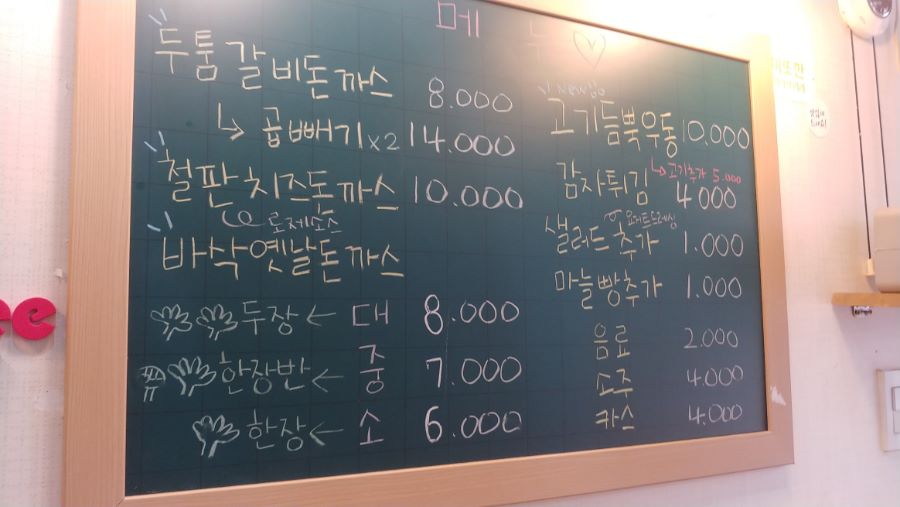 메 뉴
두툼갈비돈까스 8.000
↳ 곱빼기x2 14.000
철판치즈돈까스 10.000
로제소스
바삭옛날돈까스
두장 ← 대 8.000
한장반 ← 중 7.000
한장 ← 소 6.000
고기듬뿍우동 10.000
↳ 고기추가 5.000
감자튀김 4000
요거트드레싱
샐러드 추가 1.000
마늘빵추가 1.000
음료 2.000
소주 4.000
카스 4.000